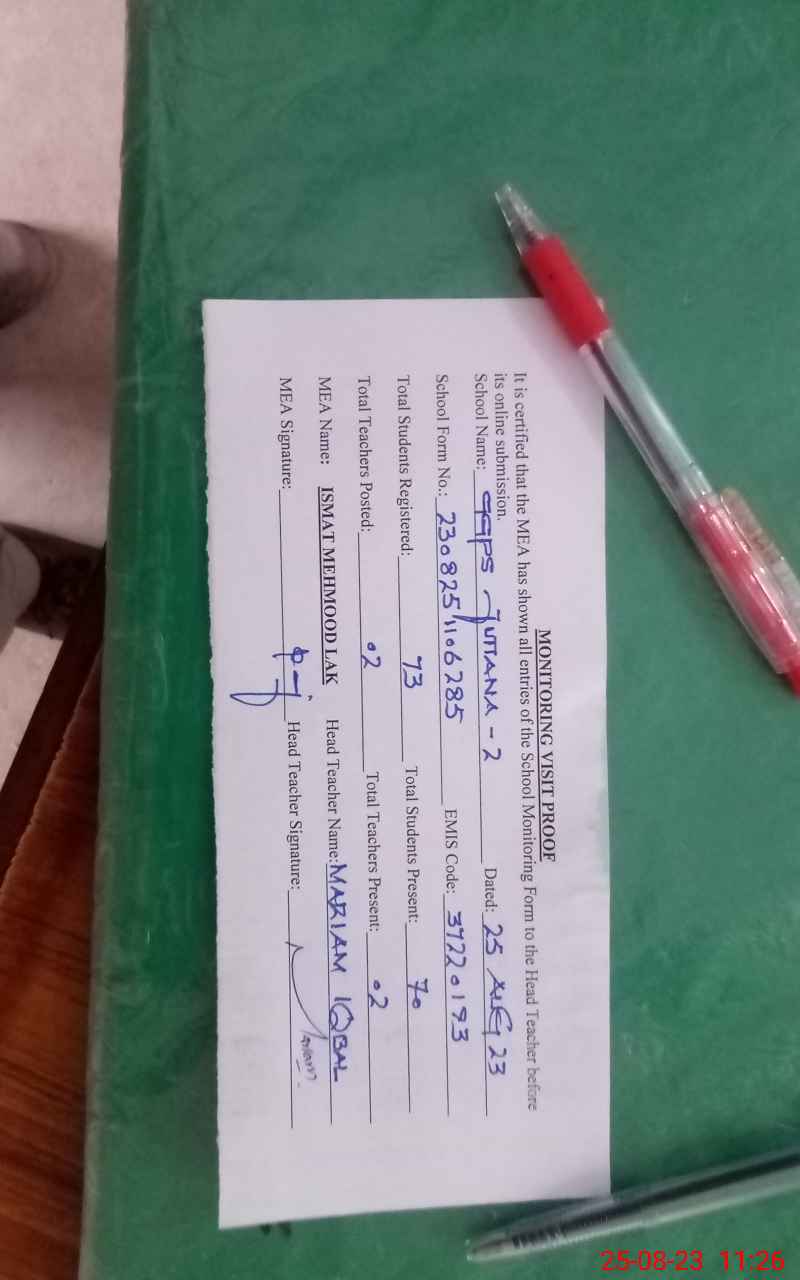 MONITORING VISIT PROOF
It is certified that the MEA has shown all entries of the School Monitoring Form to the Head Teacher before
its online submission.
School Name: GGPS JUTTANA - 2 Dated: 25 AUG 23
School Form No.: 230825/1106285 EMIS Code: 37220193
Total Students Registered: 73 Total Students Present: 70
Total Teachers Posted: 02 Total Teachers Present: 02
MEA Name: ISMAT MEHMOOD LAK Head Teacher Name: MARIAM IQBAL
MEA Signature: Head Teacher Signature:
25-08-23 11:26